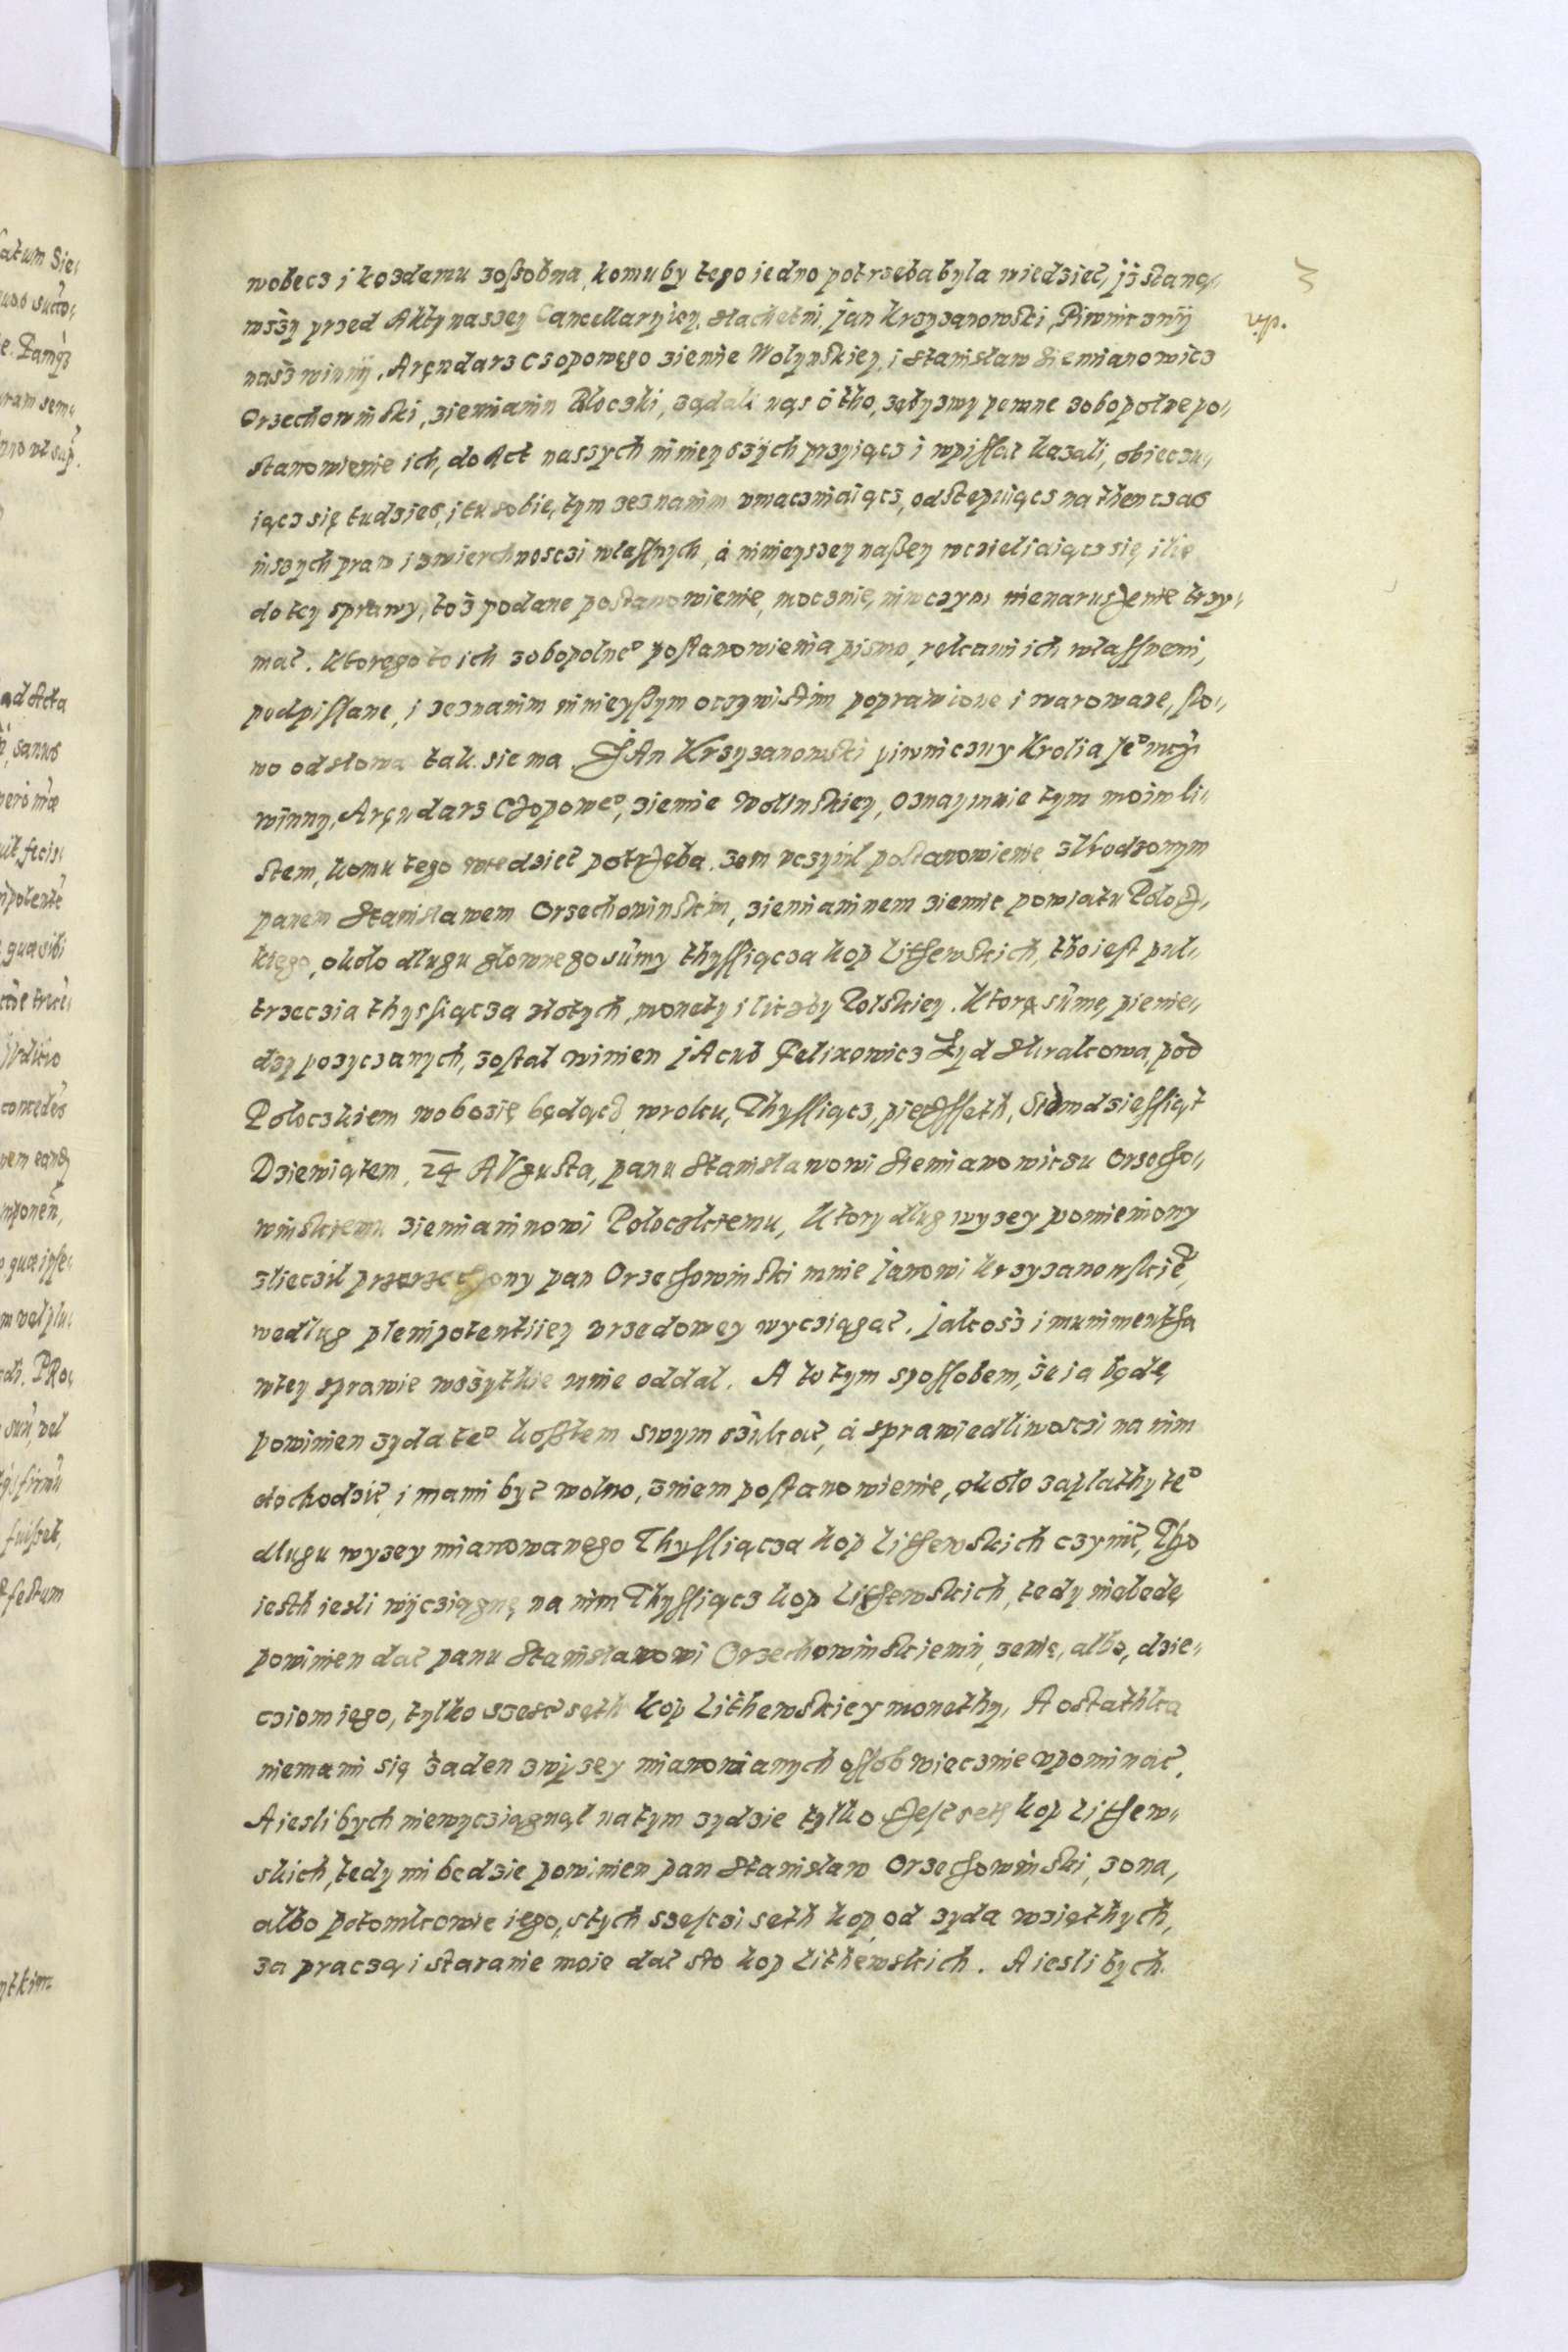 wobecz i kozdemu zoßobna, komuby tego iedno potrzeba byla wiedziec, jż staną„
wszy przed Akty naszey Cancellaryiey, slachetni, Jan Krzyzanowski, Piwniczny
nasz winny, Aręndarz Czopowęgo ziemie Wolynskiey, i Stanisław Siemianowicz
Orzechowinski, ziemianin Płoczki, ządali nąs ó tho, zębyzmy pewne zobopolne po„
stanowienie ich, do Act naszych ninieyszych przyiącz i wpissac kazali, obieczu„
iącz się tudzies, i tu sobie, tym zeznanim vmaczniaiącz, odstepuiącz na then czas
inszych praw i zwierchnosczi własnych, á ninieyszey naßey wczieliaiącz się ilie
do tey sprawy, toż podane postanowienie, mocznie, niwczym nienaruszenie trzy„
mac. Ktoręgo to ich zobopolneo postanowienia pismo, rękami ich własnemi,
podpissane, i zeznanim ninieyßym oczywistim poprawione i warowane, slo„
wo od słowa tak sie ma. JAn Krzyzanowski piwniczny Krolia Jeo mczi
winny, Aręndarz Czopoweo, ziemie Wolinskiey, Oznaymuie tym moim li„
stem, komu tego wiedziec potrzeba, zem vczynil postanowienie z Urodzonym
panem Stanisławem Orzechowinskim, ziemianinem ziemie powiatu Polocz„
kięgo, około dlugu głownego sumy thyssiącza kop Lithewskich, tho iest puł„
trzeczia thyssiącza złotych, monety i liczby Polskiey. Ktorą sumę, pienie„
dzy pozyczanych, zostal winien jAcub Felixowicz Zyd Skrakowa, pod
Poloczkiem wobozię będącz wroku, Thyssiącz, pieczsseth, Siedmdziessiąt
Dziewiątem, 24 AVgusta, panu Stanisławowi Siemianowiczu Orzecho„
winskiemu ziemianinowi Poloczkiemu, Ktory dlug wyzey pomieniony
zlieczil przerzeczony pan Orzechowinski mnie Janowi Krzyzanowskie,
wedlug plenipotentiiey vrzedowey wycziągac. Jakosz i munimentha
wtey sprawie wszytkie mnie oddal. A to tym spossobem, że ia będę,
powinien zyda teo kosztem swym szukac, á sprawiedliwosczi na nim
dochodzic, i mam byc wolno, zniem postanowienie, około zaplathy teo
dlugu wyzey mianowanęgo Thyssiącza kop Lithewskich czynic, Tho
iesth iesli wycziągnę na nim Thyssiącz kop Lithewskich, tedy niebedę
powinien dac panu Stanisławowi Orzechowinskiemu, zenie, albo, dzie„
cziom iego, tylko szesc seth kop Lithewskiey monethy, A ostathka
niema mi się żaden zwyzey mianowianych ossob wiecznie vpominac.
A iesli bych niewycziągnąl na tym zydzie tylko szesc seth kop Lithew„
skich, tedy mi bedzie powinien pan Stanisław Orzechowinski, zona,
albo potomkowie iego, stych szesczi seth kop, od zyda wziethych,
za praczą i staranie moie dac sto kop Lithewskich. A iesli bych